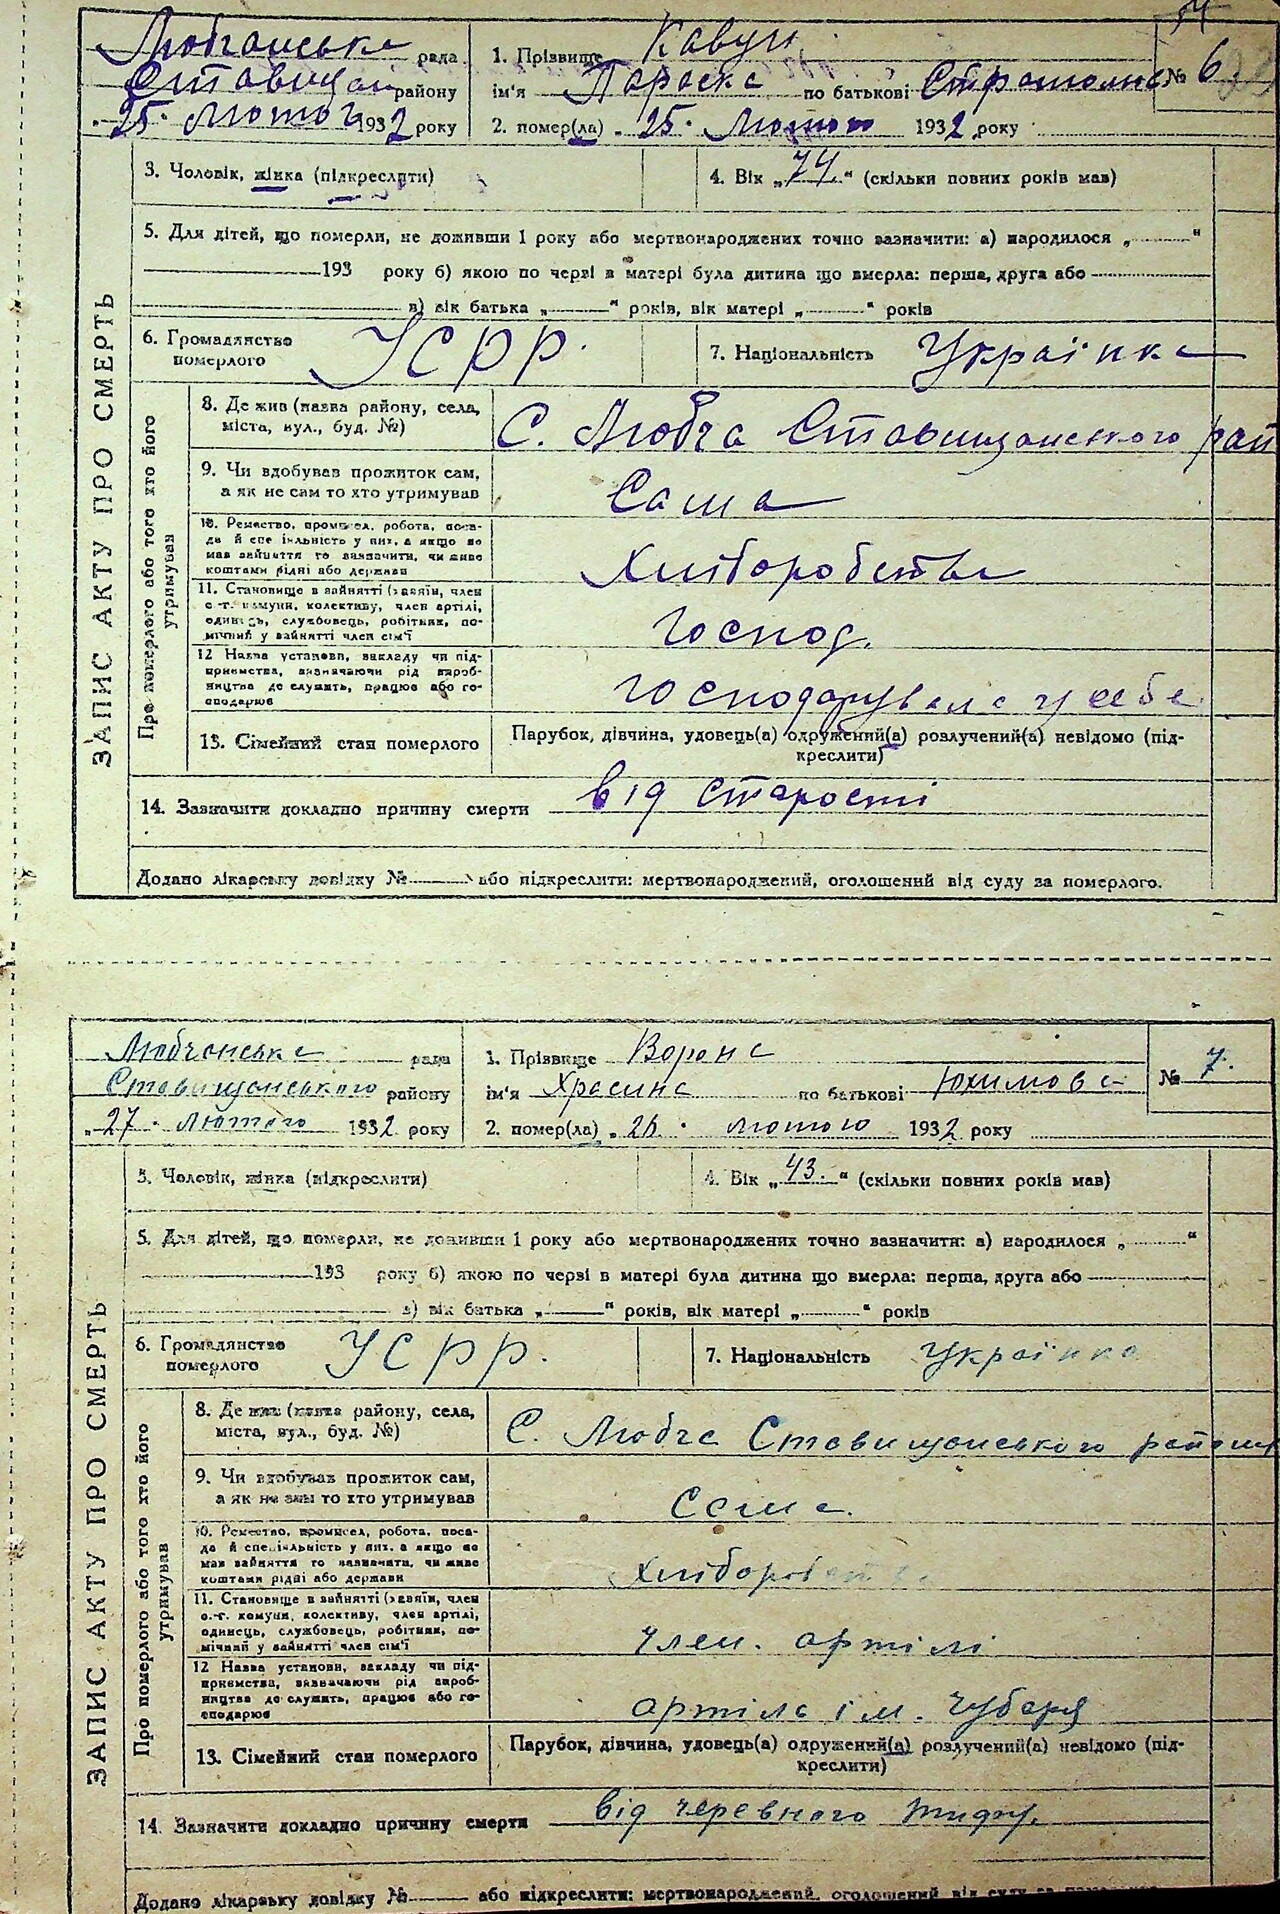 54
Любчанська рада
Ставищан району
"25" Лютого 1932 року
1. Прізвище Кавун
ім'я Параска по батькові
№ 6.
2. помер(ла) "25" Лютого 1932 року
3. Чоловік, жінка (підкреслити)
4. Вік „74" (скільки повних років мав)
5. Для дітей, що померли, не доживши 1 року або мертвонароджених точно зазначити: а) народилося „ "
193 року б) якою по черзі в матері була дитина що вмерла: перша, друга або
в) вік батька „ " років, вік матері „ " років
ЗАПИС АКТУ ПРО СМЕРТЬ
6. Громадянство
померлого
УСРР.
7. Національність Українка
Про померлого або того хто його
утримував
8. Де жив (назва району, села,
міста, вул., буд. №)
С. Любча Ставищанського рай
9. Чи вдобував прожиток сам,
а як не сам то хто утримував
Сама
10. Ремество, промисел, робота, поса-
да й спеціяльність у них, а якщо не
мав зайняття то зазначити, чи живе
коштами рідні або держави
Хліборобства
11. Становище в зайнятті (хазяїн, член
с.-г. комуни, колективу, член артілі,
одинець, службовець, робітник, по-
мічний у зайнятті член сім'ї
Господ.
12 Назва установи, закладу чи під-
приємства, визначаючи рід вироб-
ництва де служить, працює або го-
сподарює
господарувала у себе
13. Сімейний стан померлого
Парубок, дівчина, удовець(а) одружений(а) розлучений(а) невідомо (під-
креслити)
14. Зазначити докладно причину смерти від старості
Додано лікарську довідку № або підкреслити: мертвонароджений, оголошений від суду за померлого.
Любчанська рада
Ставищанського району
"27" лютого 1932 року
1. Прізвище Ворона
ім'я Храсина по батькові Юхимова
№ 7.
2. помер(ла) "26" лютого 1932 року
3. Чоловік, жінка (підкреслити)
4. Вік „43." (скільки повних років мав)
5. Для дітей, що померли, не доживши 1 року або мертвонароджених точно зазначити: а) народилося „ "
193 року б) якою по черзі в матері була дитина що вмерла: перша, друга або
в) вік батька „ " років, вік матері „ " років
ЗАПИС АКТУ ПРО СМЕРТЬ
6. Громадянство
померлого
УСРР.
7. Національність Українка
Про померлого або того хто його
утримував
8. Де жив (назва району, села,
міста, вул., буд. №)
С. Любча Ставищанського району
9. Чи вдобував прожиток сам,
а як не сам то хто утримував
Сама.
10. Ремество, промисел, робота, поса-
да й спеціяльність у них, а якщо не
мав зайняття то зазначити, чи живе
коштами рідні або держави
Хліборобства
11. Становище в зайнятті (хазяїн, член
с.-г. комуни, колективу, член артілі,
одинець, службовець, робітник, по-
мічний у зайнятті член сім'ї
член. артілі
12 Назва установи, закладу чи під-
приємства, визначаючи рід вироб-
ництва де служить, працює або го-
сподарює
артіль ім. Чубаря
13. Сімейний стан померлого
Парубок, дівчина, удовець(а) одружений(а) розлучений(а) невідомо (під-
креслити)
14. Зазначити докладно причину смерти від черевного тифу.
Додано лікарську довідку № або підкреслити: мертвонароджений, оголошений від суду за